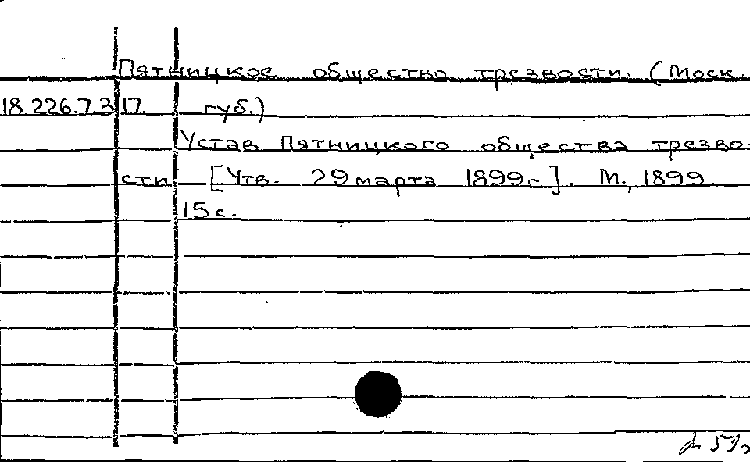 Пятницкое общество трезвости. (Моск.
18.226.7.317. губ.)
Устав Пятницкого общества трезво-
сти [Утв. 29 марта 1899г.]. М., 1899
15 с.